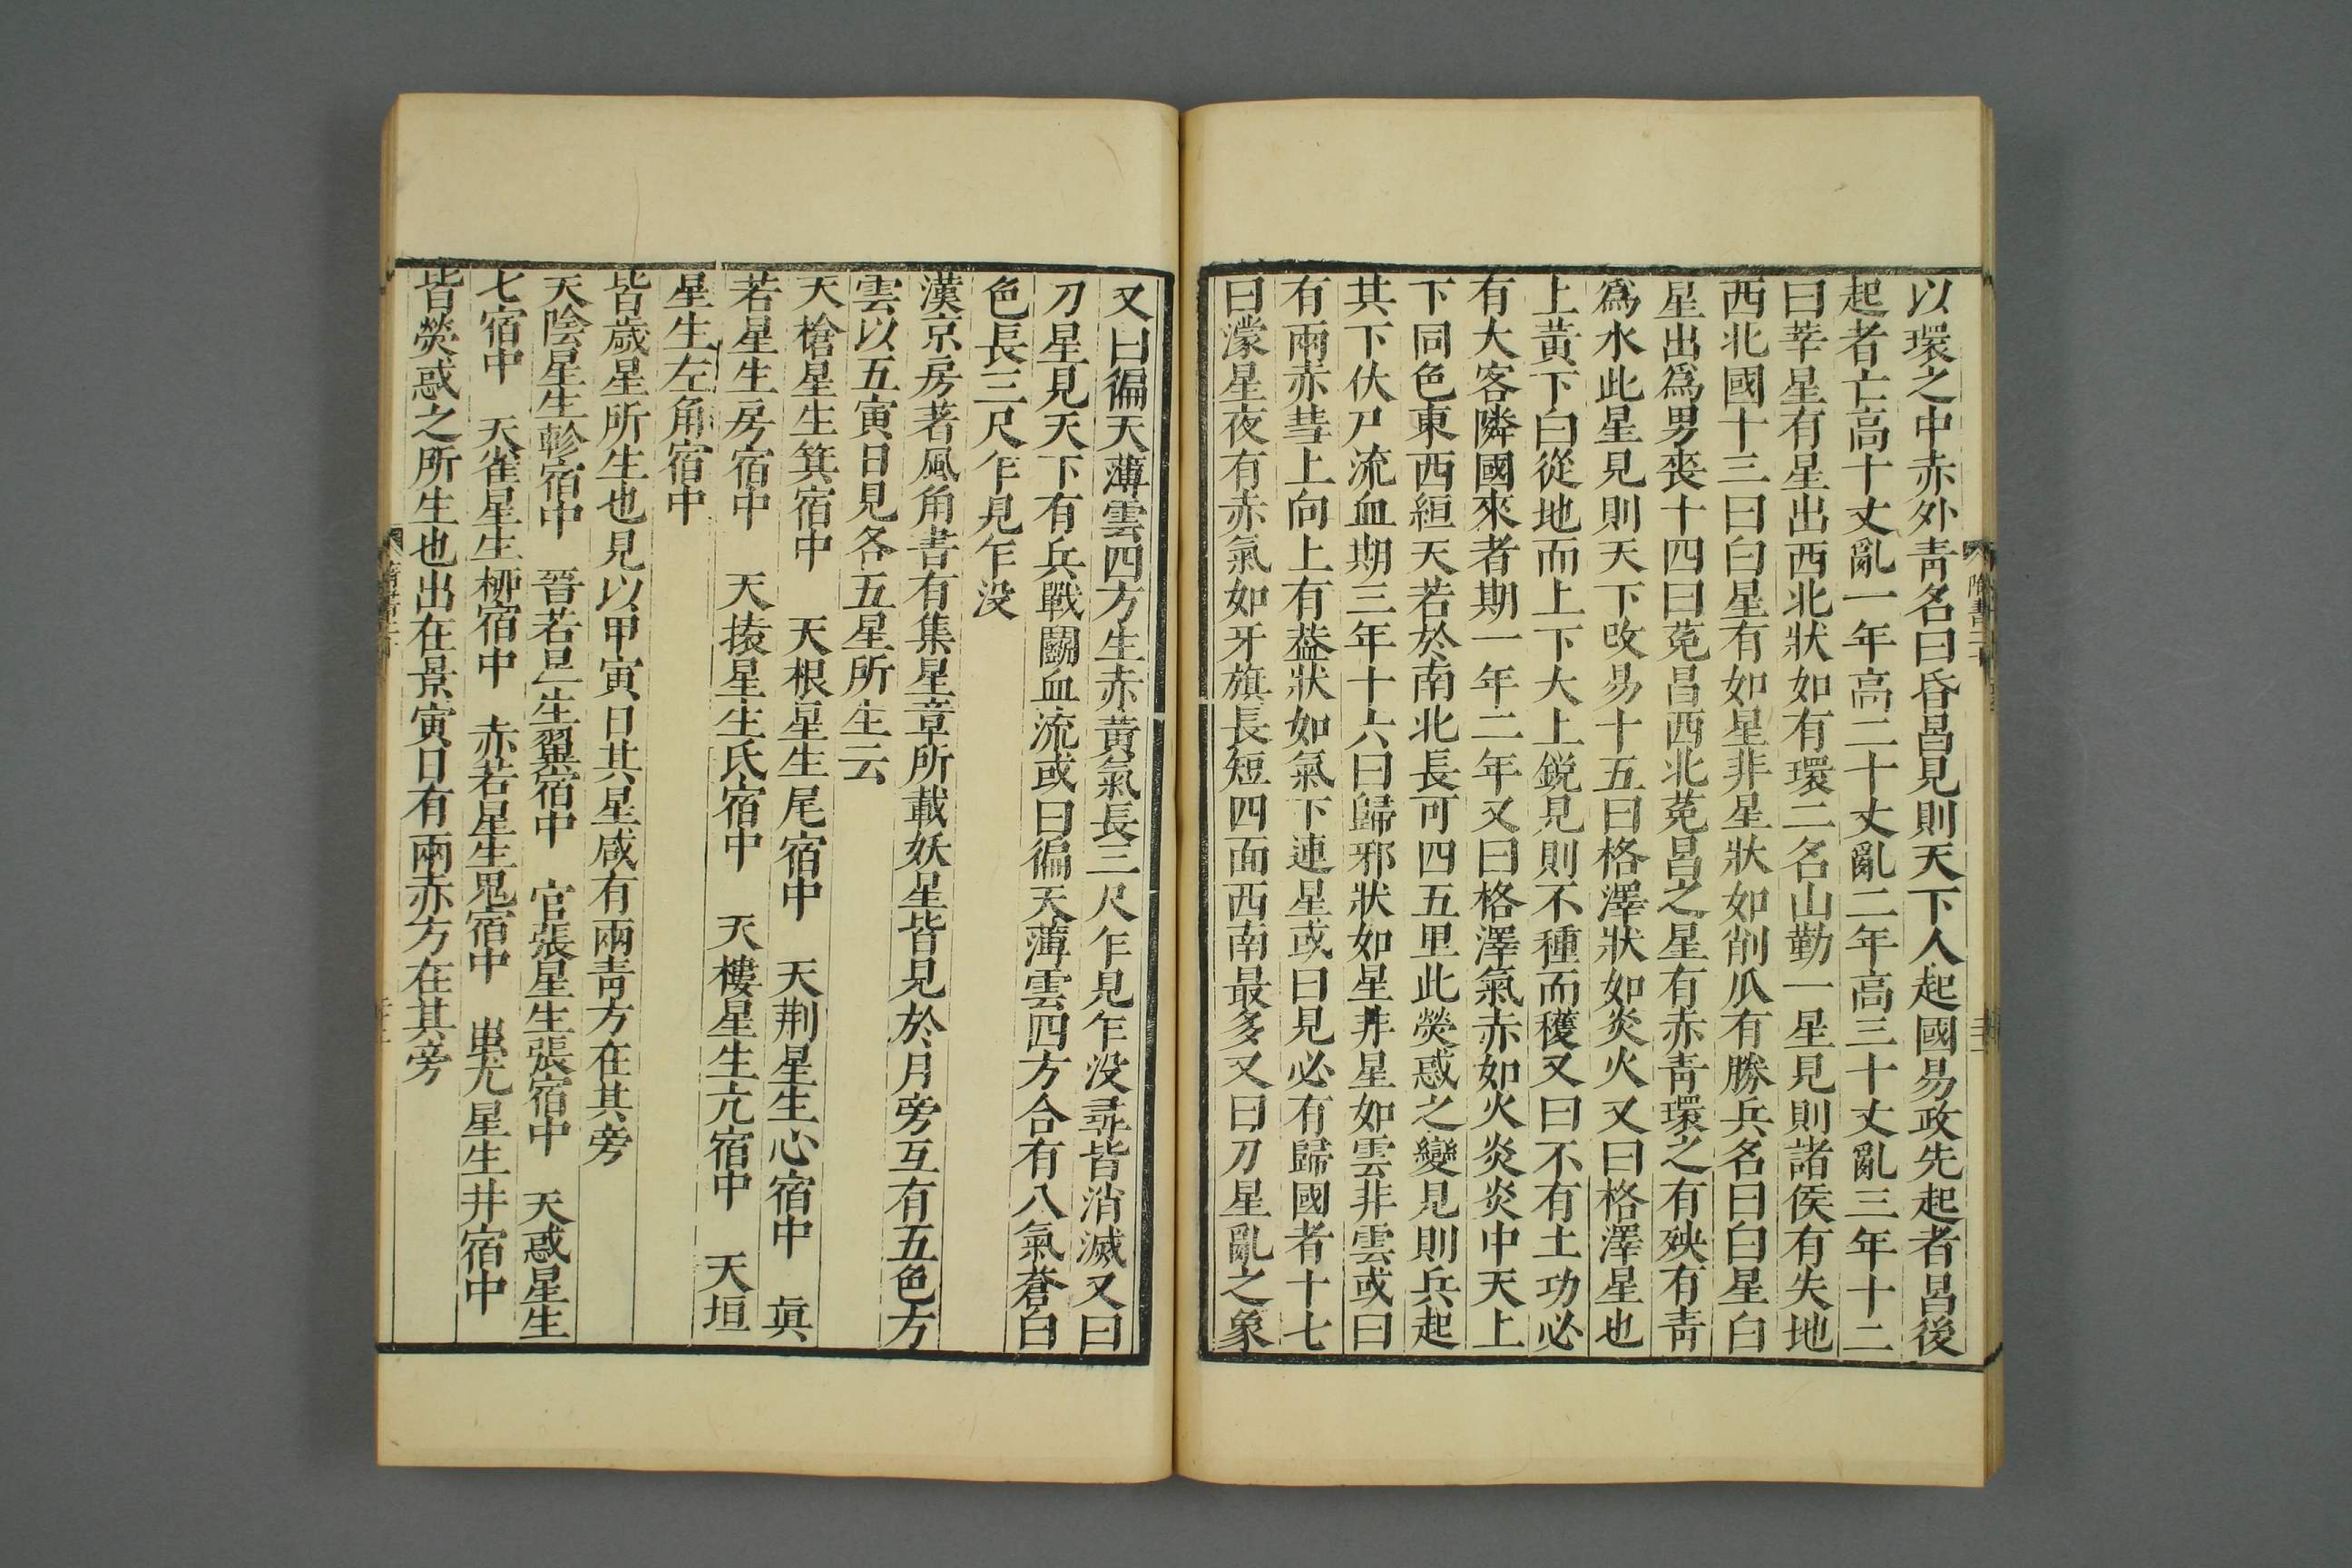 以環之中赤外青名曰昏昌見則天下人起國易政先起者昌後
起者亡高十丈亂一年高二十丈亂二年高三十丈亂三年十二
曰莘星有星出西北狀如有環二名山勤一星見則諸侯有失地
西北國十三曰白星有如星非星狀如削瓜有勝兵名曰白星白
星出爲男喪十四曰菟昌西北菟昌之星有赤青環之有殃有青
爲水此星見則天下改易十五曰格澤狀如炎火又曰格澤星也
上黃下白從地而上下大上鋭見則不種而穫又曰不有土功必
有大客隣國來者期一年二年又曰格澤氣赤如火炎炎中天上
下同色東西絙天若於南北長可四五里此熒惑之變見則兵起
其下伏尸流血期三年十六曰歸邪狀如星非星如雲非雲或曰
有兩赤彗上向上有葢狀如氣下連星或曰見必有歸國者十七
曰濛星夜有赤氣如牙旗長短四面西南最多又曰刀星亂之象
又曰徧天薄雲四方生赤黃氣長三尺乍見乍没尋皆消滅又曰
刀星見天下有兵戰鬭血流或曰徧天薄雲四方合有八氣蒼白
色長三尺乍見乍没
漢京房著風角書有集星章所載妖星皆見於月旁互有五色方
雲以五寅日見各五星所生云
天槍星生箕宿中　天根星生尾宿中　天荆星生心宿中　眞
若星生房宿中　天㨱星生氐宿中　天樓星生亢宿中　天垣
星生左角宿中
皆歲星所生也見以甲寅日其星咸有兩青方在其旁
天陰星生軫宿中　晉若星生翼宿中　官張星生張宿中　天惑星生
七宿中　天雀星生柳宿中　赤若星生鬼宿中　蚩尤星生井宿中
皆熒惑之所生也出在景寅日有兩赤方在其旁